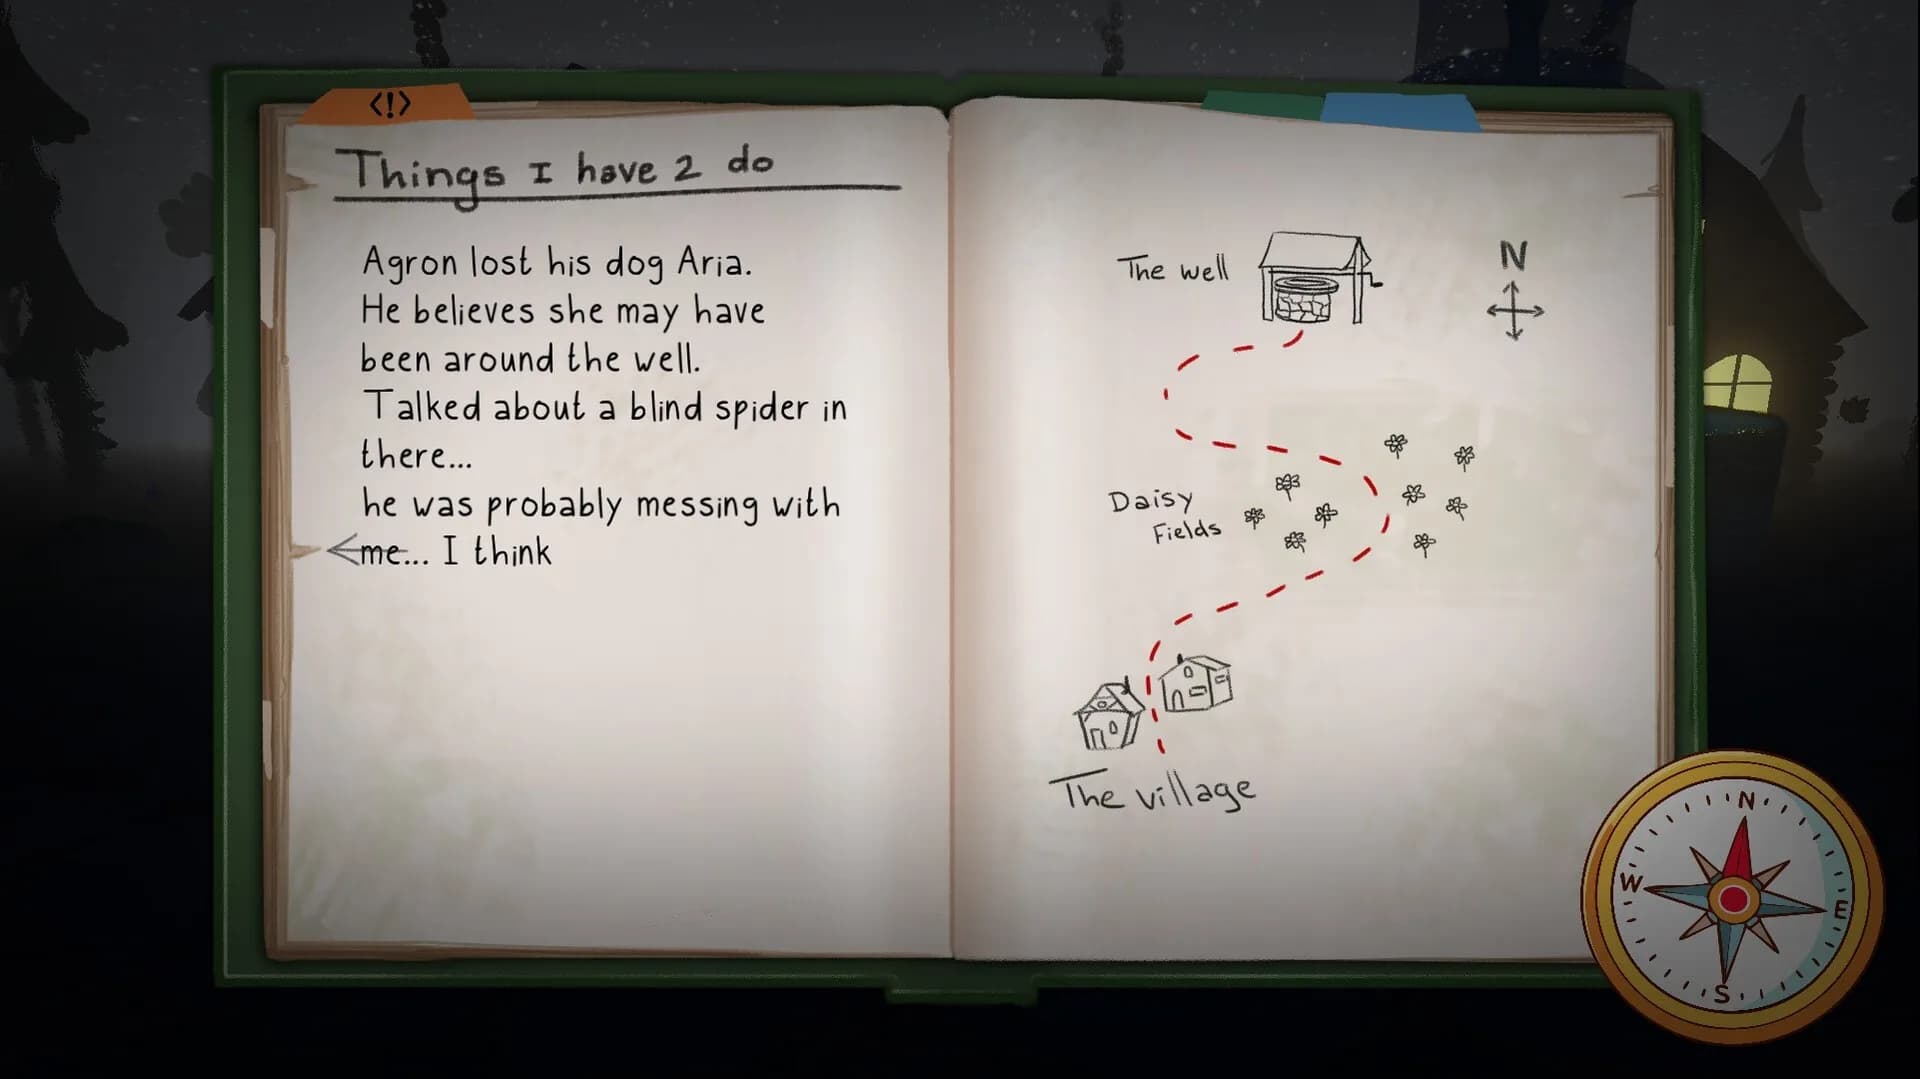 <!>
Things I have 2 do
Agron lost his dog Aria.
He believes she may have
been around the well.
Talked about a blind spider in
there...
he was probably messing with
me... I think
The well
N
Daisy
Fields
The village
N
W
E
S